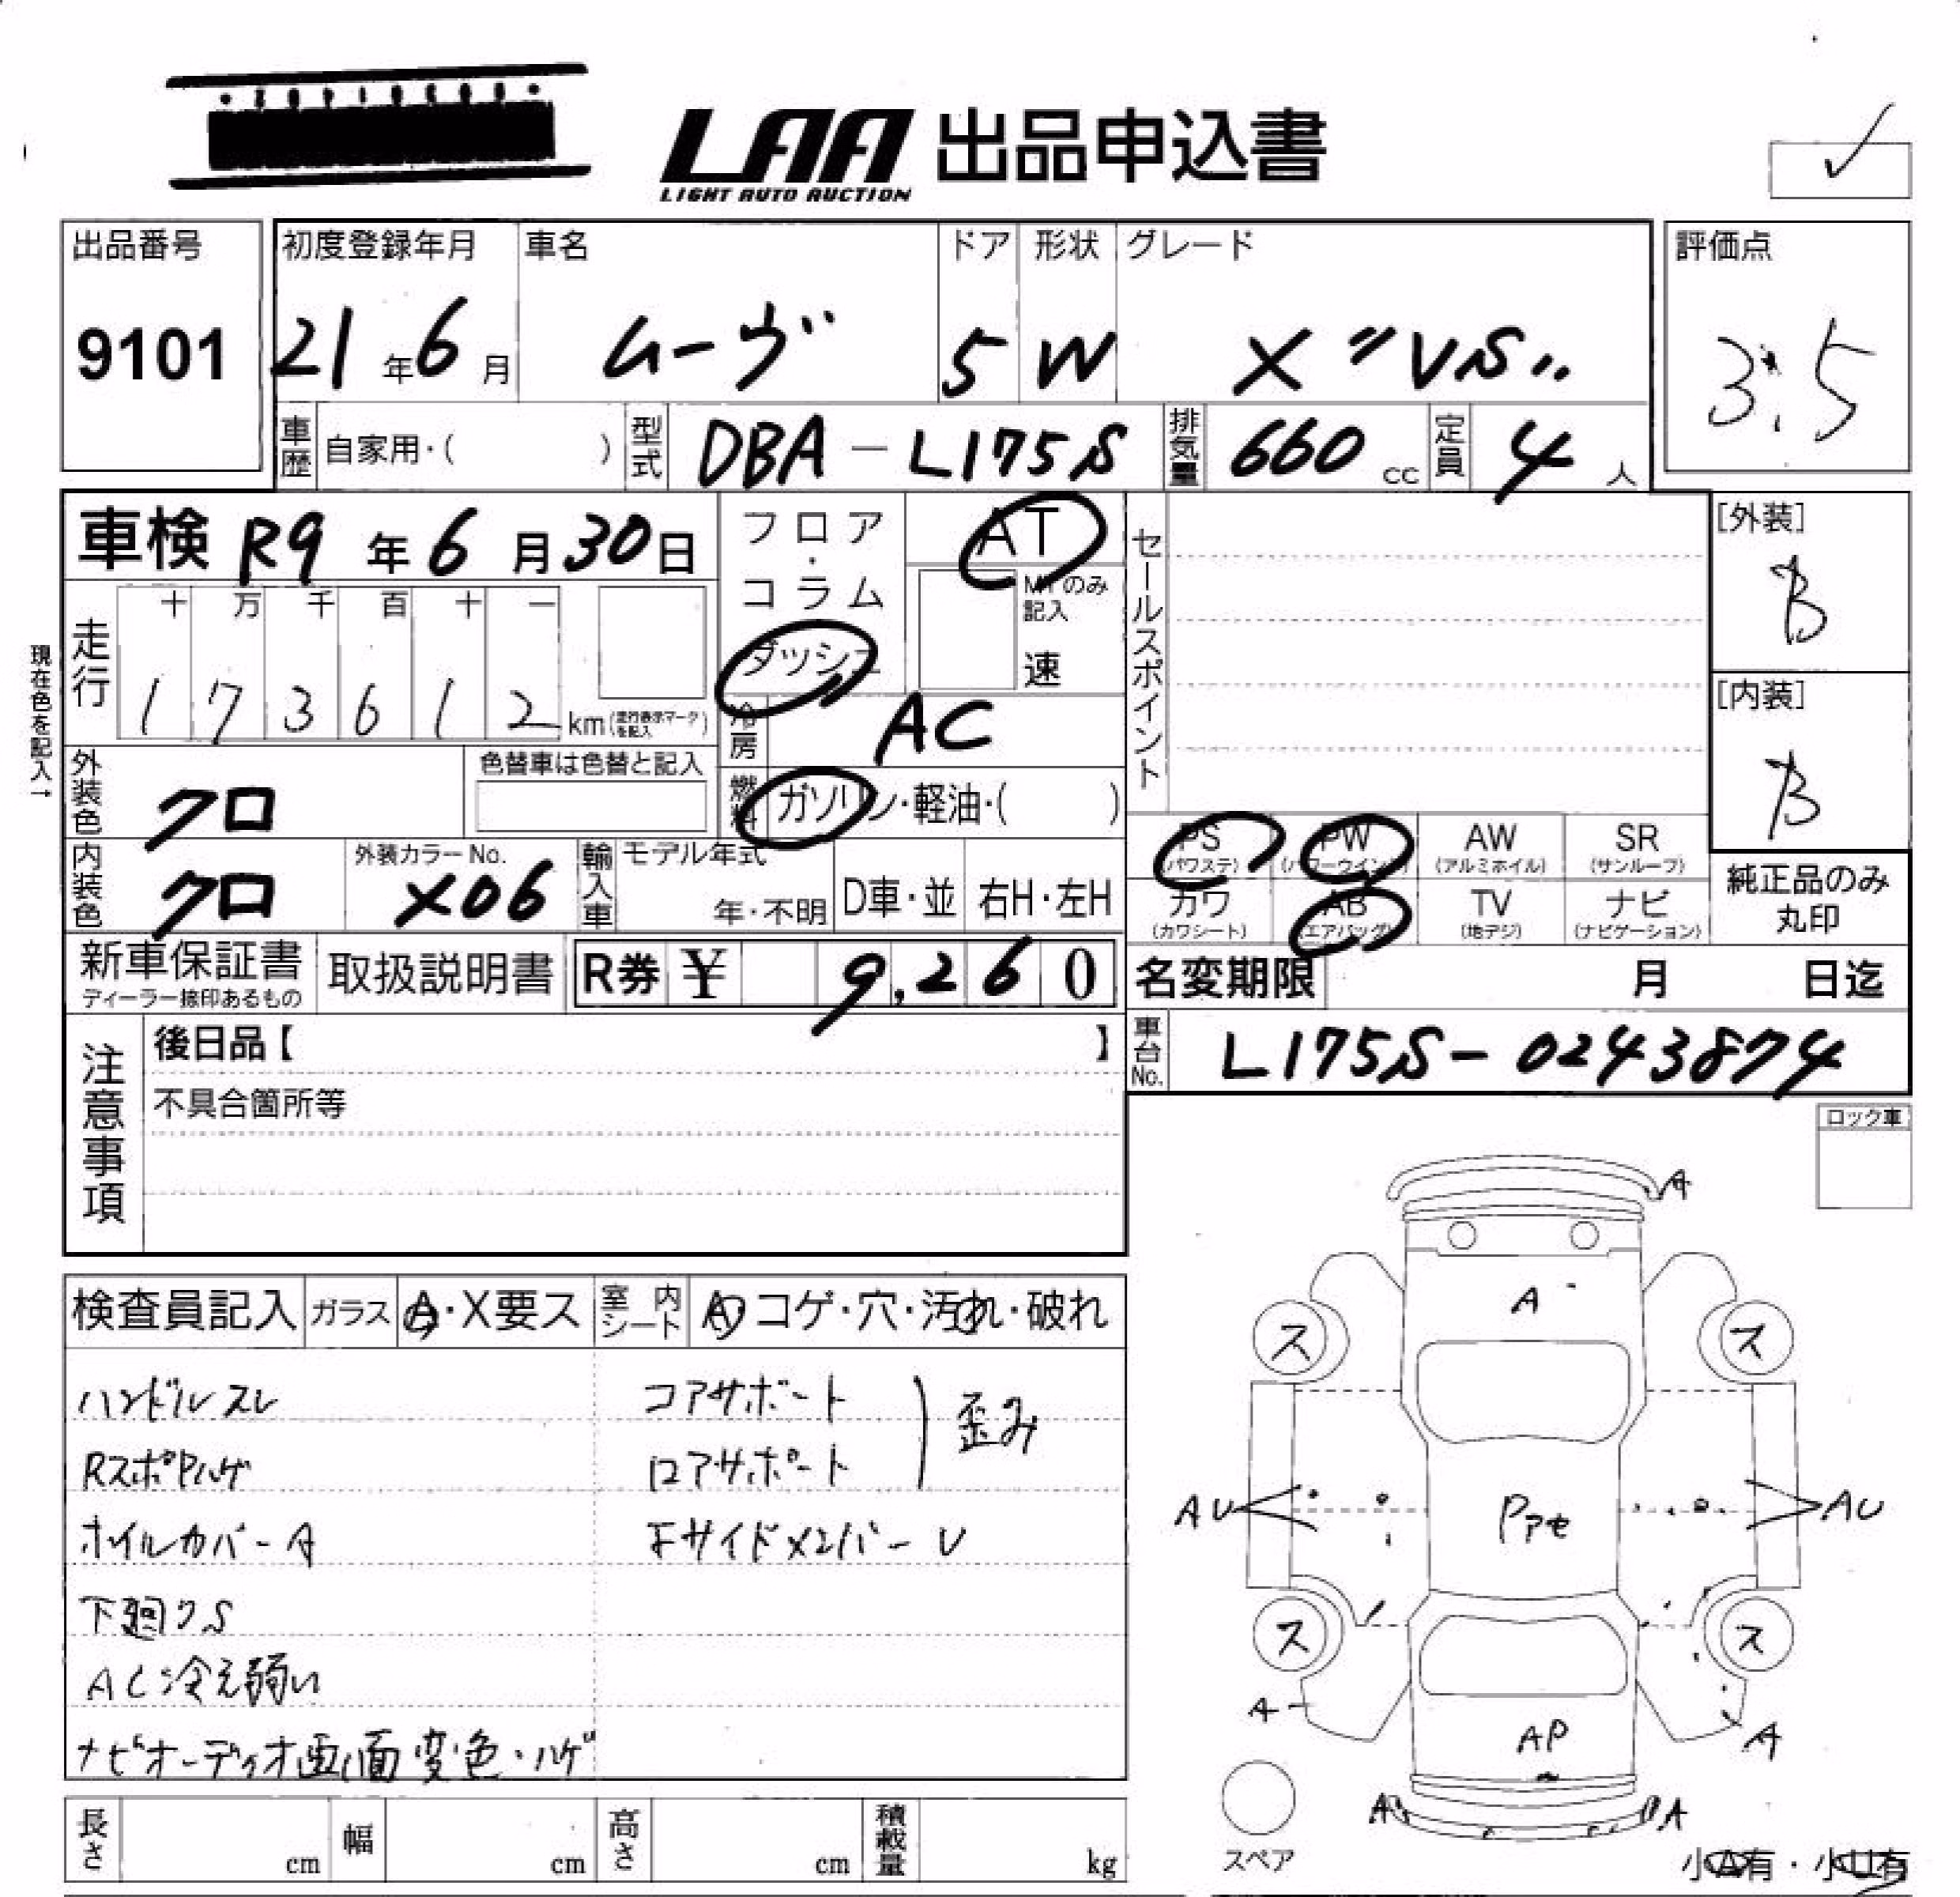 LAA 出品申込書
LIGHT AUTO AUCTION
出品番号
9101
初度登録年月
21年6月
車名
ムーヴ
ドア
5
形状
W
グレード
X "VS"
評価点
3.5
車歴 自家用・( )
型式 DBA-L175S
排気量 660 cc
定員 4人
車検 R9年6月30日
フロア・コラム
ダッシュ
AT
MTのみ記入
速
セールスポイント
[外装]
B
[内装]
B
現在色を記入→
走行
十 万 千 百 十 一
1 7 3 6 1 2 km (走行表示マークを記入)
冷房 AC
外装色 クロ
色替車は色替と記入
燃料 ガソリン・軽油・( )
内装色 クロ
外装カラーNo.
X06
輸入車
モデル年式
年・不明
D車・並
右H・左H
PS (パワステ)
PW (パワーウインド)
AW (アルミホイル)
SR (サンルーフ)
カワ (カワシート)
AB (エアバッグ)
TV (地デジ)
ナビ (ナビゲーション)
純正品のみ丸印
新車保証書
ディーラー捺印あるもの
取扱説明書
R券 ¥ 9,260
名変期限 月 日迄
車台No. L175S-0243874
注意事項
後日品【 】
不具合箇所等
ロック車
検査員記入
ガラス A・X要ス
室内シート A・コゲ・穴・汚れ・破れ
ハンドルスレ
RスポPハゲ
ホイルカバーA
下廻クS
AC冷え弱い
ナビオーディオ画面変色・ハゲ
コアサポート
ロアサポート
歪み
Fサイドメンバー U
A
A
ス ス
AU AU
Pアセ
ス ス
A A
AP
A A
スペア
小A有・小U有
長さ cm
幅 cm
高さ cm
積載量 kg